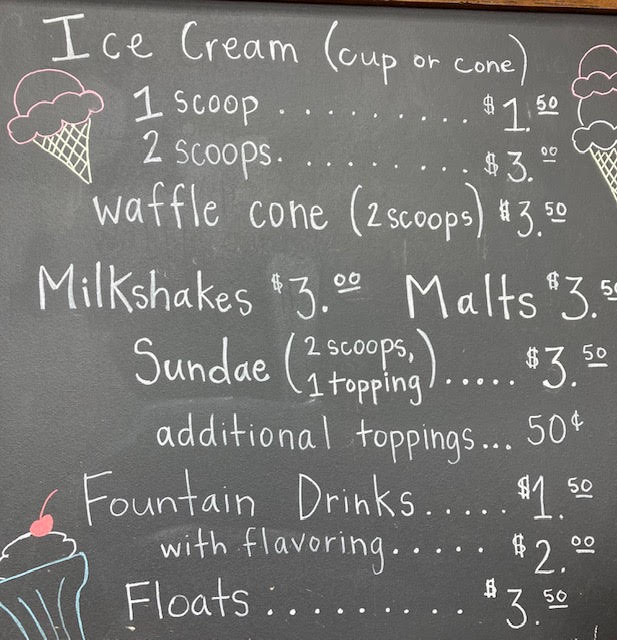 Ice Cream (cup or cone)
1 scoop . . . . . . . . . . $1.50
2 scoops. . . . . . . . . . $3.00
waffle cone (2 scoops) $3.50
Milkshakes $3.00 Malts $3.5
Sundae (2 scoops, 1 topping)..... $3.50
additional toppings... 50¢
Fountain Drinks..... $1.50
with flavoring...... $2.00
Floats .......... $3.50